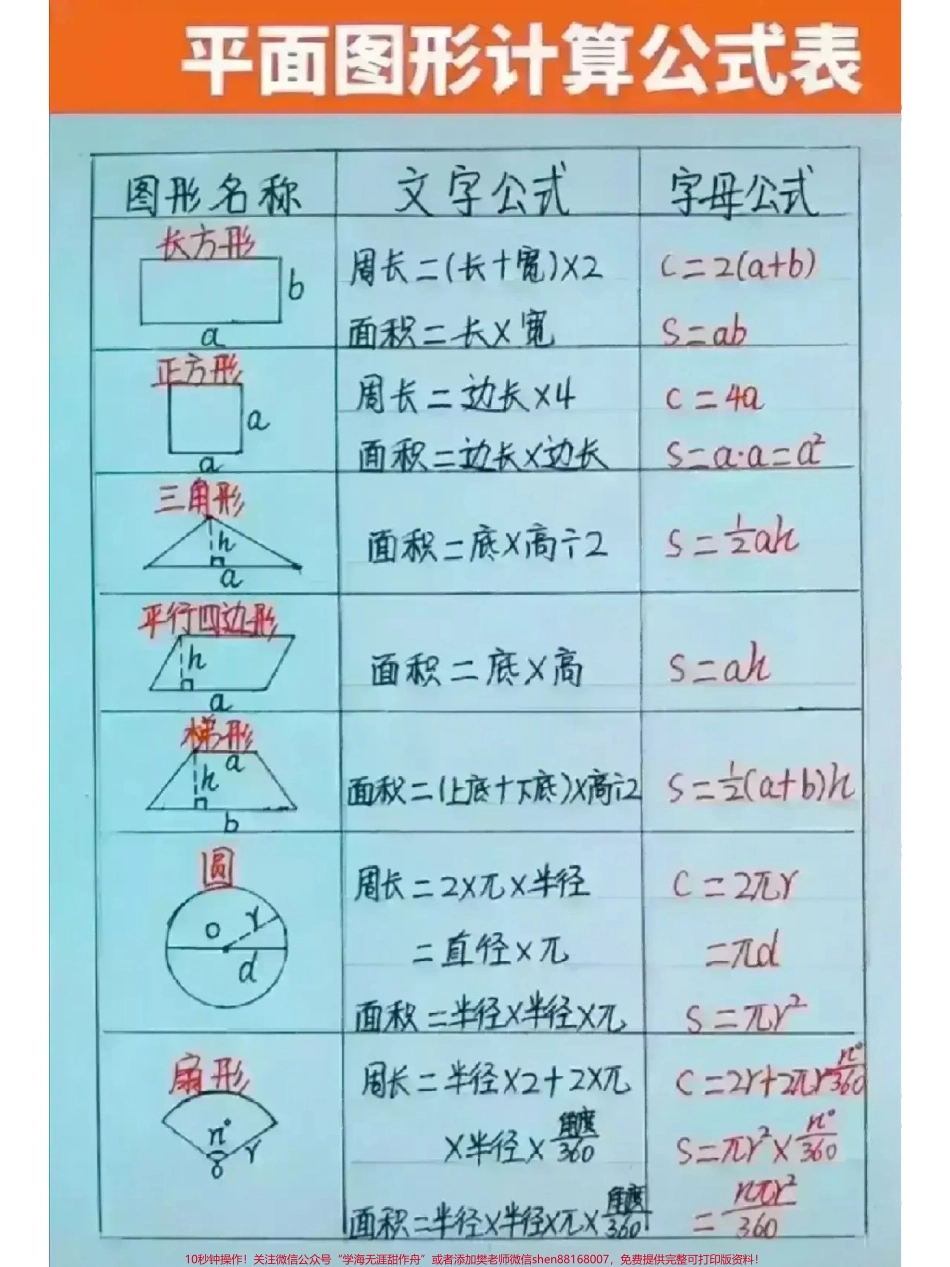 平面图形计算公式表
图形名称 文字公式 字母公式
长方形
b
a
周长=(长+宽)×2 C=2(a+b)
面积=长×宽 S=ab
正方形
a
a
周长=边长×4 C=4a
面积=边长×边长 S=a·a=a²
三角形
h
a
面积=底×高÷2 S=½ah
平行四边形
h
a
面积=底×高 S=ah
梯形
a
h
b
面积=(上底+下底)×高÷2 S=½(a+b)h
圆
O r
d
周长=2×π×半径 C=2πr
=直径×π =πd
面积=半径×半径×π S=πr²
扇形
n°
O r
周长=半径×2+2×π C=2r+2πr n°/360
×半径×角度/360 S=πr²×n°/360
面积=半径×半径×π×角度/360 =nπr²/360
10秒钟操作！关注微信公众号“学海无涯甜作舟”或者添加樊老师微信shen88168007，免费提供完整可打印版资料！